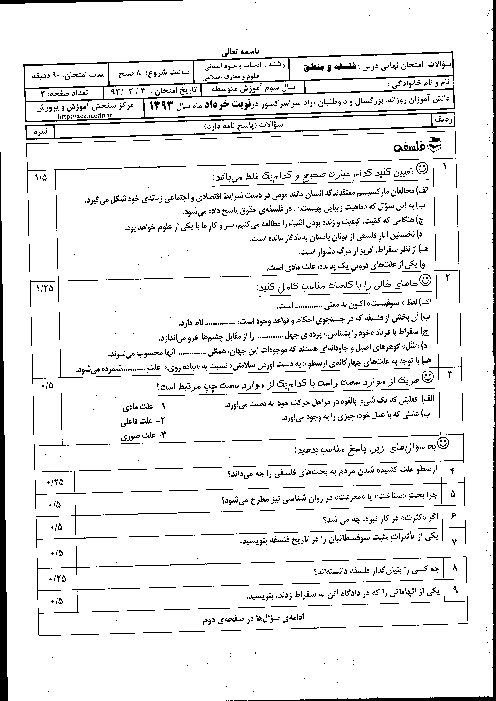 باسمه تعالی
سؤالات امتحان نهایی درس : فلسفه و منطق
رشته : ادبیات و علوم انسانی
علوم و معارف اسلامی
ساعت شروع: ۸ صبح
مدت امتحان: ۹۰ دقیقه
نام و نام خانوادگی :
سال سوم آموزش متوسطه
تاریخ امتحان :
تعداد صفحه: ۲
دانش آموزان روزانه، بزرگسال و داوطلبان آزاد سراسر کشور در نوبت خرداد ماه سال ۱۳۹۳
مرکز سنجش آموزش و پرورش
ردیف
سؤالات (پاسخ نامه دارد)
نمره
فلسفه
۱
تعیین کنید کدام عبارت صحیح و کدام یک غلط می‌باشد:
۱/۵
الف) مخالفان مارکسیسم معتقدند که انسان مانند مومی در دست شرایط اقتصادی و اجتماعی زمانه‌ی خود شکل می‌گیرد.
ب) به این سؤال که «ماهیت زیبایی چیست؟» در فلسفه‌ی حقوق پاسخ داده می‌شود.
ج) هنگامی که کمّیت، کیفیت و زنده بودن اشیاء را مطالعه می‌کنیم، سر و کار ما با یکی از علوم خواهد بود.
د) نخستین آثار فلسفی از یونان باستان به یادگار مانده است.
هـ) از نظر سقراط، گریز از مرگ دشوار است.
و) یکی از علت‌های درونی یک پدیده، علت مادی است.
۲
جاهای خالی را با کلمات مناسب کامل کنید:
۱/۲۵
الف) لفظ « سوفیست» اکنون به معنی ............ است.
ب) آن بخش از فلسفه که در جستجوی احکام و قواعد وجود است، ............ نام دارد.
ج) سقراط با فریاد «خود را بشناس»، پرده‌ی جهل ............ را از مقابل چشم‌ها فرو می‌اندازد.
د) «مُثُل» گوهرهای اصیل و جاودانه‌ای هستند که موجودات این جهان، همگی ............ آنها محسوب می‌شوند.
هـ) با توجه به علت‌های چهارگانه‌ی ارسطو، «به دست آوردن سلامتی» نسبت به «پیاده روی» علت ............ شمرده می‌شود.
۳
هر یک از موارد سمت راست با کدام یک از موارد سمت چپ مرتبط است؟
۰/۵
الف) فعلیتی که یک شیء بالقوه در مراحل حرکت خود به دست می‌آورد.
۱- علت مادی
ب) علتی که با عمل خود، چیزی را به وجود می‌آورد.
۲- علت فاعلی
۳- علت صوری
به سؤال‌های زیر، پاسخ مناسب بدهید:
۴
ارسطو علت کشیده شدن مردم به بحث‌های فلسفی را چه می‌داند؟
۰/۲۵
۵
چرا بحث «شناخت» یا «معرفت» در روان شناسی نیز مطرح می‌شود؟
۰/۵
۶
اگر «کثرت» در کار نبود، چه می شد؟
۰/۵
۷
یکی از تأثیرات مثبت سوفسطائیان را در تاریخ فلسفه بنویسید.
۰/۵
۸
چه کسی را بنیان‌گذار فلسفه دانسته‌اند؟
۰/۲۵
۹
یکی از اتهاماتی را که در دادگاه آتن به سقراط زدند، بنویسید.
۰/۵
ادامه‌ی سؤال‌ها در صفحه‌ی دوم